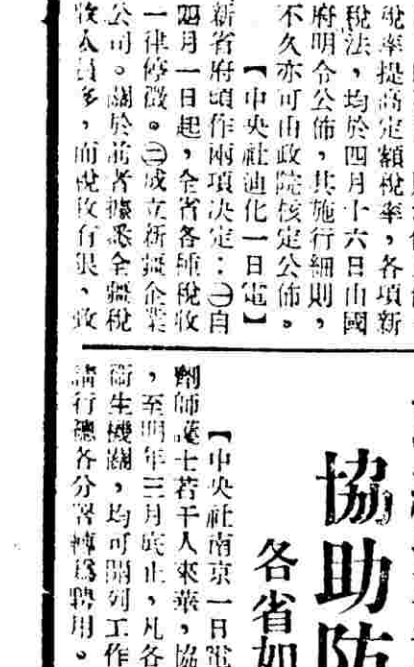 稅率提高定額稅率，各項新
稅法，均於四月十六日由國
府明令公佈，其施行細則，
不久亦可由政院核定公佈。
【中央社迪化一日電】
新省府頃作兩項決定：㊀自
四月一日起，全省各種稅收
一律停徵。㊁成立新疆企業
公司。關於前者據悉全疆稅
收人員多，而稅收有限，致
協助防
各省如
【中央社南京一日電
劑師護士若干人來華，協
，至明年三月底止，凡各
衞生機關，均可開列工作
請行總各分署轉爲聘用。